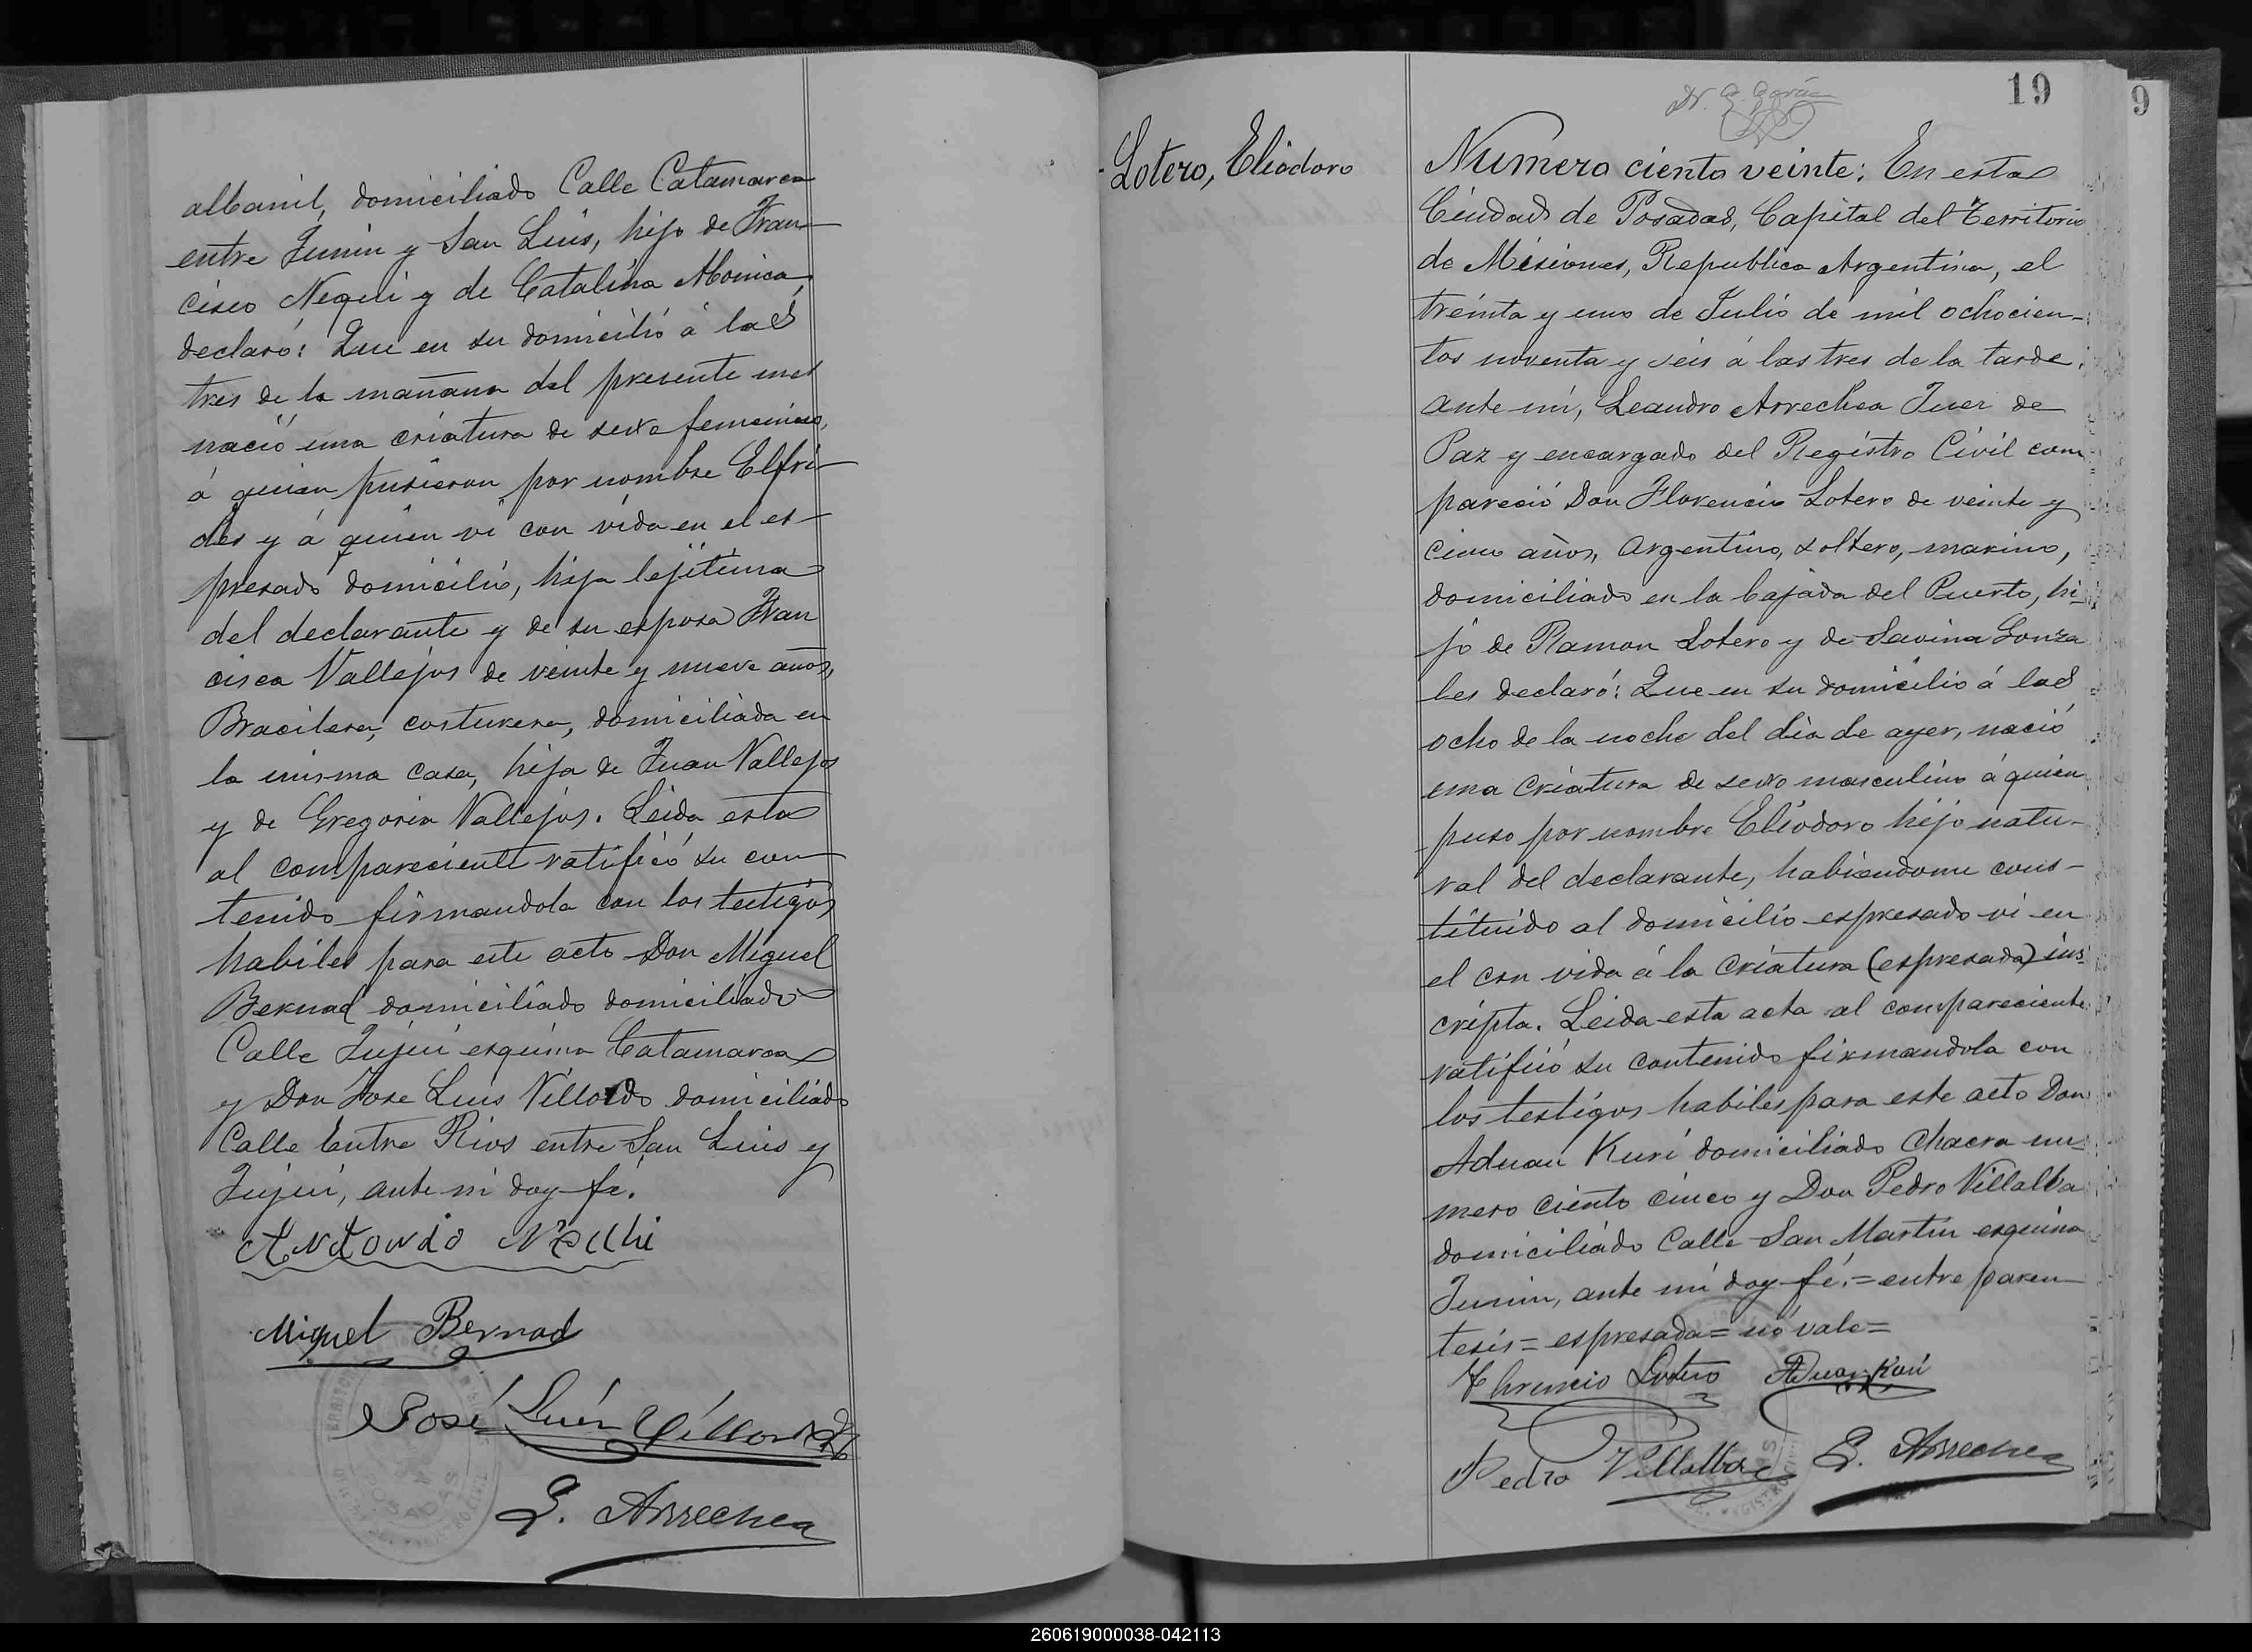 albanil, domiciliado Calle Catamarca
entre Junin y San Luis, hijo de Fran-
cisco Nequi y de Catalina Monica,
declaró: Que en su domicilió á las
tres de la mañana del presente mes
nació una criatura de sexo femenino,
á quien pusieron por nombre Elfri-
des y á quien vi con vida en el es-
presado domicilio, hija lejitima
del declarante y de su esposa Fran
cisca Vallejos de veinte y nueve años,
Bracilera, costurera, domiciliada en
la misma casa, hija de Juan Vallejos
y de Gregoria Vallejos. Leida esta
al compareciente ratificó su con
tenido firmandola con los testigos
habiles para este acto Don Miguel
Bernad domiciliado domiciliado
Calle Jujui esquina Catamarca
y Don Jose Luis Villordo domiciliado
Calle Entre Rios entre San Luis y
Jujui, ante mi doy fé.
Antonio
Miguel Bernad
José Luis
L. Arrechea
19
9
Lotero, Eliodoro
Numero ciento veinte: En esta
Ciudad de Posadas, Capital del Territorio
de Misiones, Republica Argentina, el
treinta y uno de Julio de mil ochocien-
tos noventa y seis á las tres de la tarde.
ante mi, Leandro Arrechea Juez de
Paz y encargado del Registro Civil com
pareció Don Florencio Lotero de veinte y
cinco años, argentino, soltero, marino,
domiciliado en la bajada del Puerto, hi-
jo de Ramon Lotero y de Savina Gonza
les declaró: Que en su domicilio á las
ocho de la noche del dia de ayer, nació
una criatura de sexo masculino á quien
puso por nombre Eliodoro hijo natu-
ral del declarante, habiendome cons-
tituido al domicilio espresado vi en
el con vida á la criatura (espresada) ins
cripta. Leida esta acta al compareciente
ratificó su contenido firmandola con
los testigos habiles para este acto Don
Aduan Kuri domiciliado Chacra nu-
mero ciento cinco y Don Pedro Villalba
domiciliado Calle San Martin esquina
Junin, ante mi doy fé.=entre paren
tesis=espresada=nó vale=
Florencio Lotero Aduan Kuri
Pedro Villalba L. Arrechea
260619000038-042113